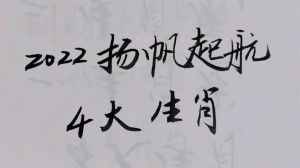 2022扬帆起航
4大生肖